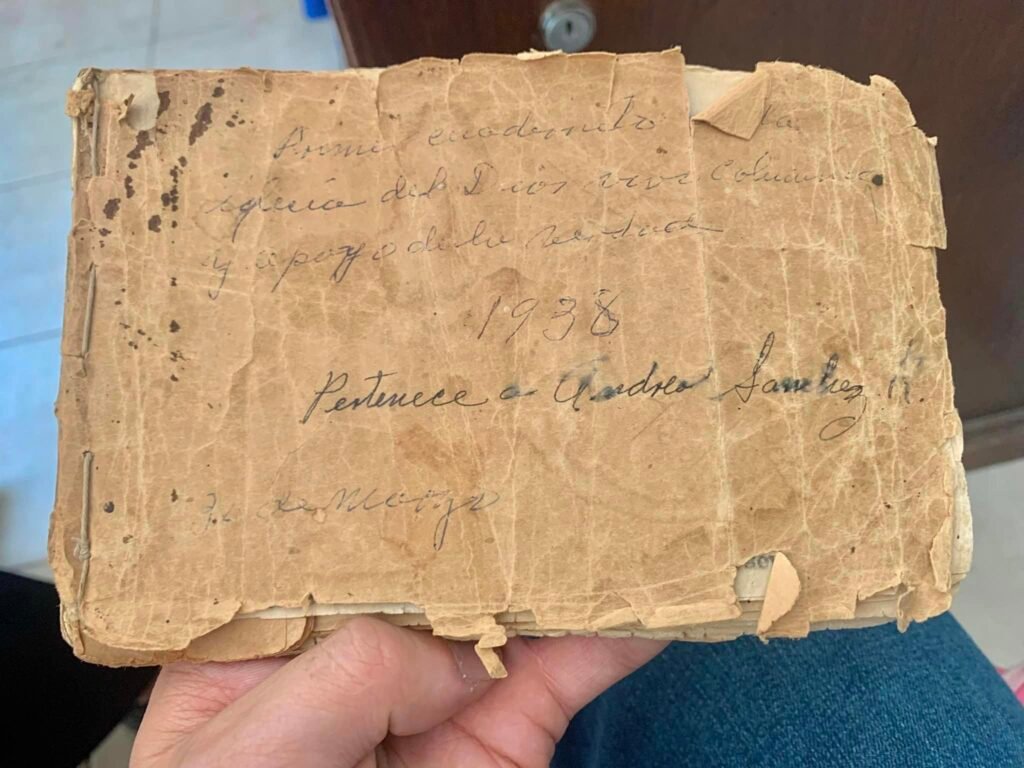 Primer cuadernito la
iglesia del Dios vivo Columna
y apoyo de la verdad
1938
Pertenece a Andrea Sanchez R.
de Marzo